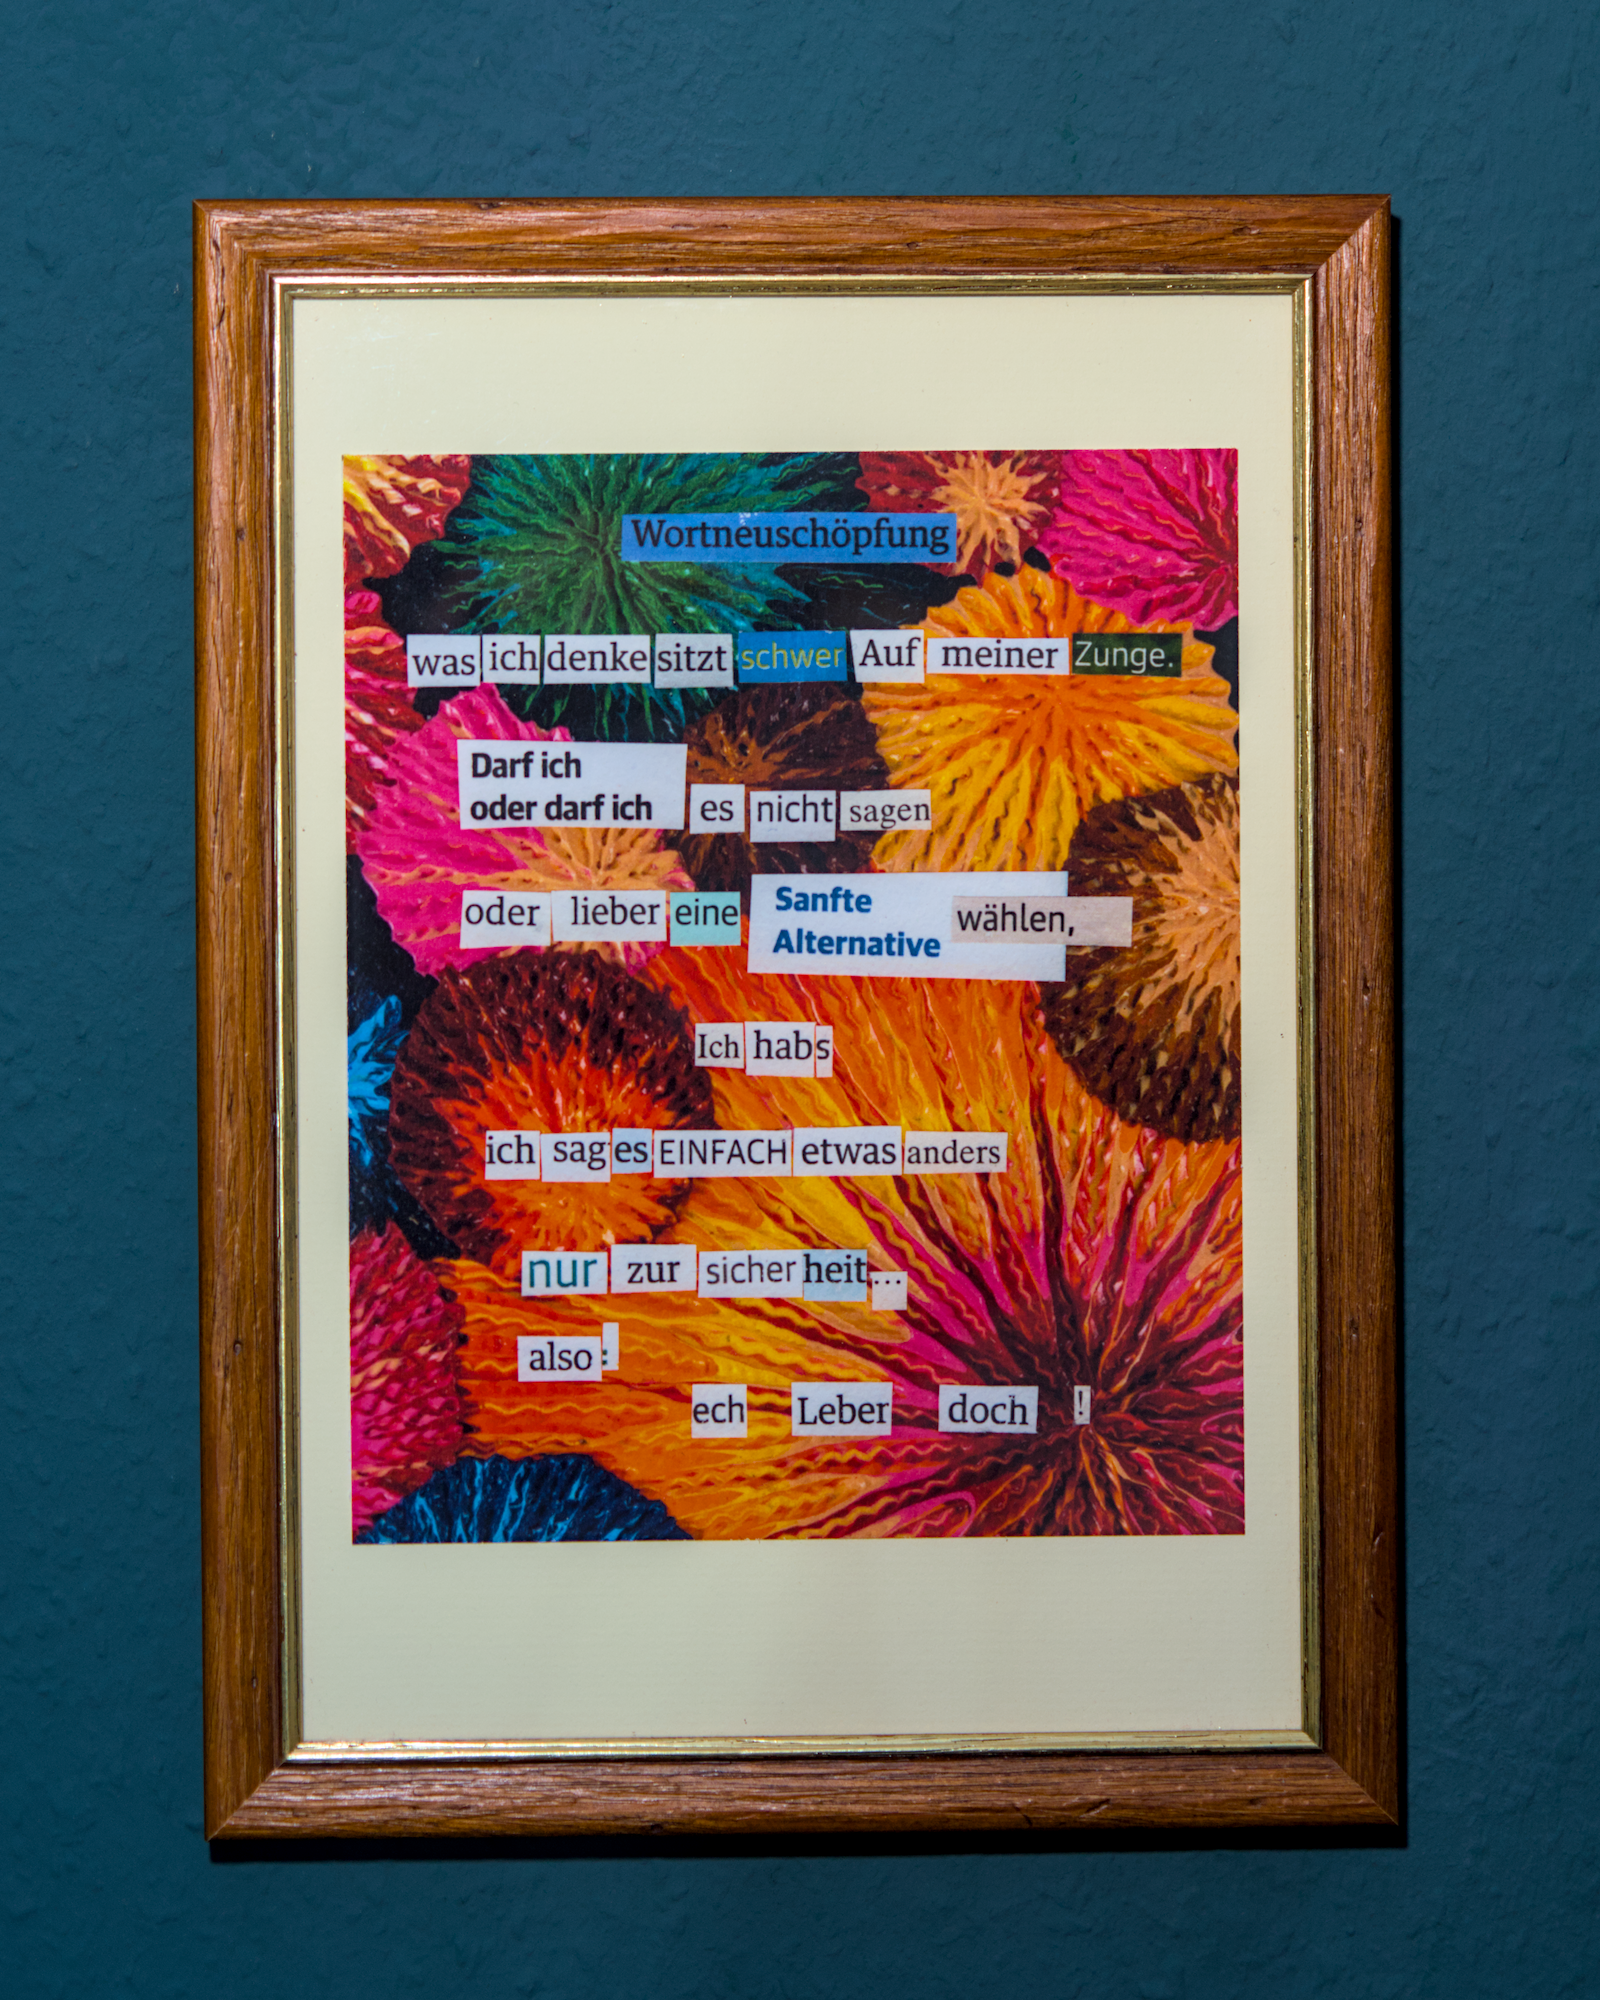 Wortneuschöpfung
was ich denke sitzt schwer Auf meiner Zunge.
Darf ich
oder darf ich es nicht sagen
oder lieber eine Sanfte Alternative wählen,
Ich habs
ich sag es EINFACH etwas anders
nur zur sicherheit...
also:
ech Leber doch !